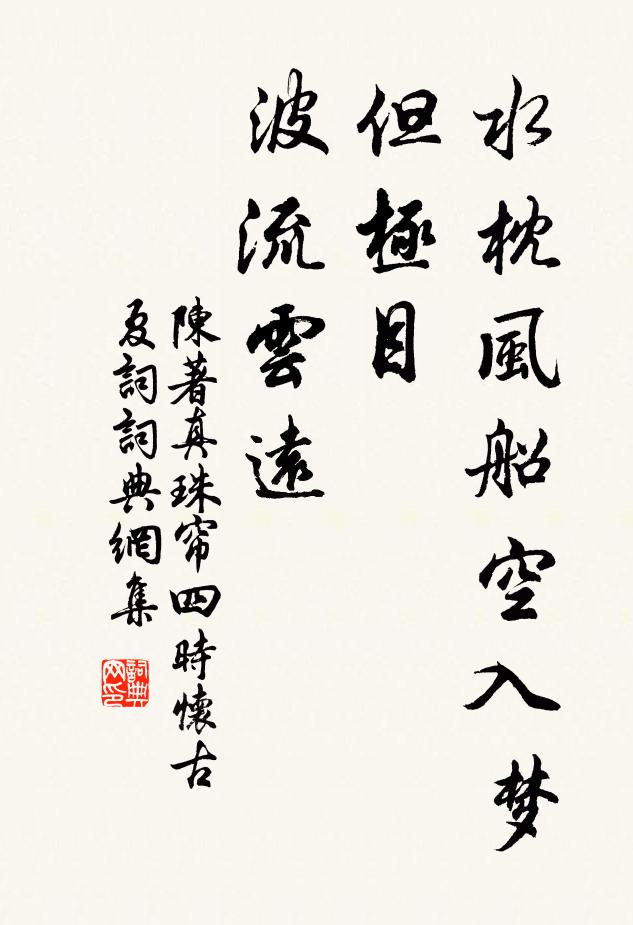 水枕風船空入梦
但極目
波流雲遠
陳著真珠帘四時懷古
夏詞詞典網集
詞典网印